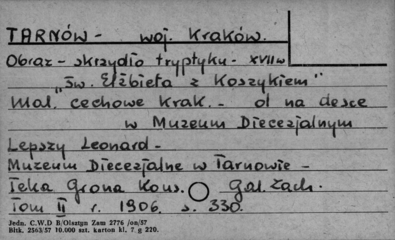 TARNÓW - woj. Kraków.
Obraz - skrzydło tryptyku - XVII w
"Św. Elżbieta z Koszykiem"
Mal. cechowe Krak. - ol na desce
w Muzeum Diecezjalnym
Lepszy Leonard -
Muzeum Diecezjalne w Tarnowie -
Teka Grona Kons. Gal. Zach.
Tom II r. 1906. s. 330.
Jedn. C.W.D B/Olsztyn Zam 2776 /on/57
Bltk. 2563/57 10.000 szt. karton kl. 7 g 220.